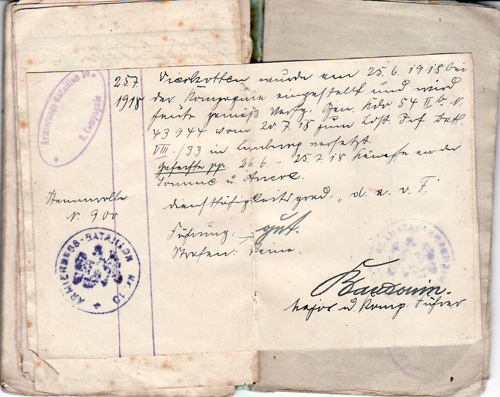 Armierungs-Bataillon
Compagnie
25.7.
1918
Vierkotten wurde am 25.6.1918 bei
der Kompagnie eingestellt und wird
heute gemäß Verfg. Gen. Kdo 54 II b. N.
43944 vom 20.7.18 zum
VIII./33 in Limburg versetzt.
Gefechte pp. 26.6. - 25.7.18 Kämpfe an der
Somme u. Avre.
Dienstfähigkeitsgrad: "d. a. v. F.
Führung: gut.
Strafen: keine.
Stammrolle
N. 900
ARMIERUNGS-BATAILLON NR. 10
Major u. Komp. Führer